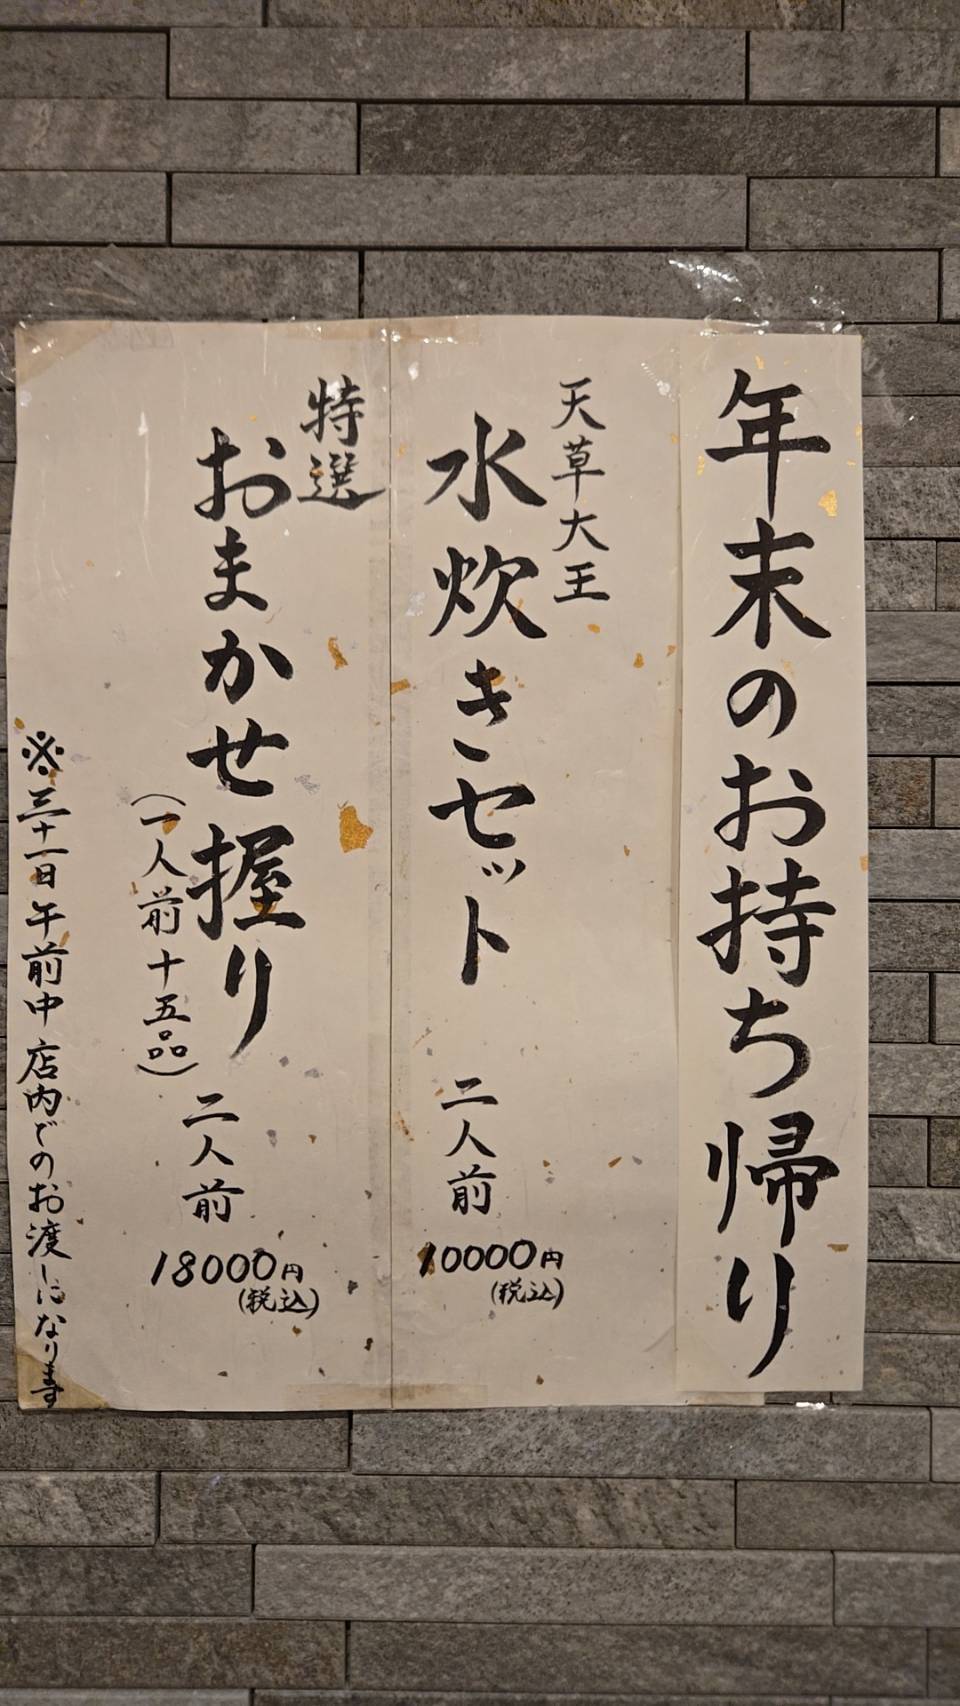 年末のお持ち帰り
天草大王
水炊きセット
二人前
10000円
(税込)
特選
おまかせ握り
(一人前十五品)
二人前
18000円
(税込)
※三十一日午前中店内でのお渡しになり〼